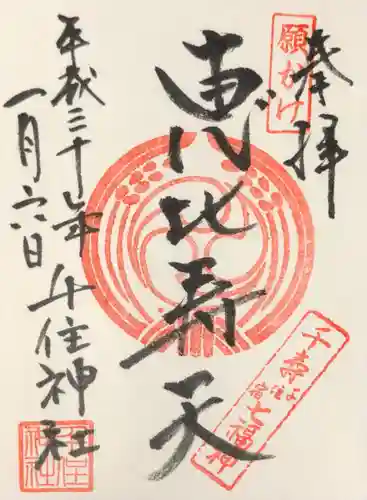 奉拝
願かけ
恵比寿天
千寿七福神
千住宿
平成三十年
一月六日
千住神社
千住神社